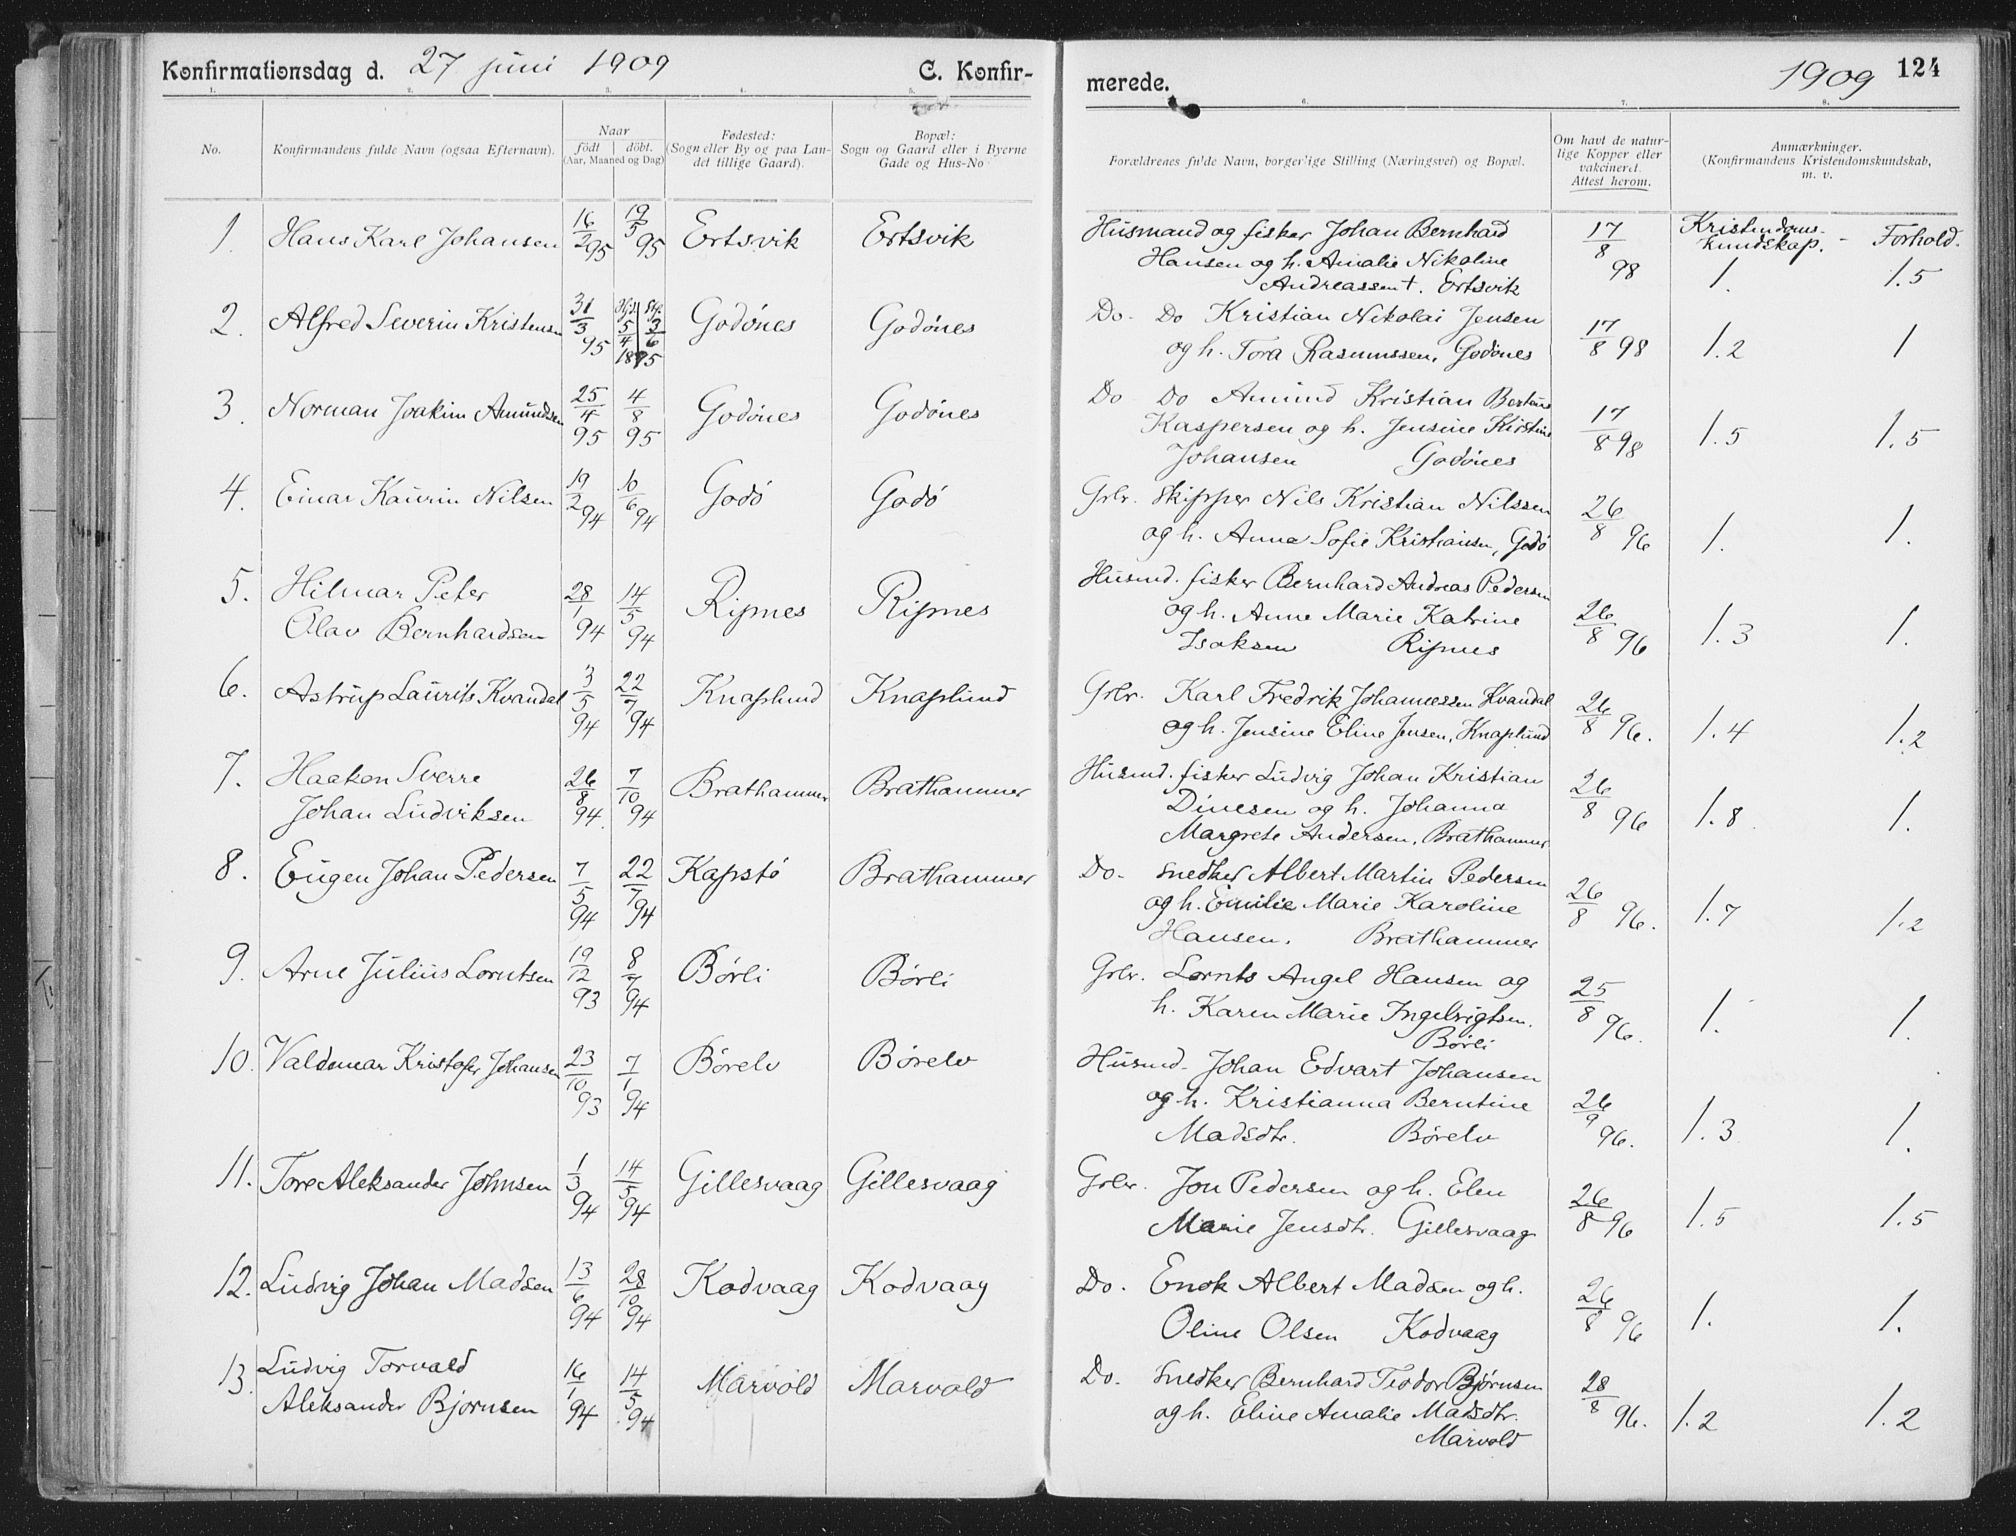 Konfirmationsdag d. 27 juni 1909 C. Konfir-
merede. 1909 124
1. 2. 3. 4. 5. 6. 7. 8.
No.
Konfirmandens fulde Navn (ogsaa Efternavn).
Naar
födt döbt.
(Aar, Maaned og Dag)
Fødested:
(Sogn eller By og paa Lan-
det tillige Gaard).
Bopæl:
Sogn og Gaard eller i Byerne
Gade og Hus-No
Forældrenes fulde Navn, borgerlige Stilling (Næringsvei) og Bopæl.
Om havt de natur-
lige Kopper eller
vakcineret.
Attest herom.
Anmærkninger.
(Konfirmandens Kristendomskundskab,
m. v.
Kristendoms-
kundskap. - Forhold.
1. Hans Karl Johansen 16/2 95 19/5 95 Ertsvik Ertsvik
Husmand og fisker Johan Bernhard
Hansen og h. Amalie Nikoline
Andreassen †. Ertsvik
17/8 98 1. 1.5
2. Alfred Severin Kristensen 31/3 95 Hjd. 5/4 3/6 1895 Godönes Godönes
Do. Do Kristian Nikolai Jensen
og h. Tora Rasmussen, Godönes
17/8 98 1.2 1
3. Norman Joakim Amundsen 25/4 95 4/8 95 Godönes Godönes
Do Do Amund Kristian Berteus
Kaspersen og h. Jensine Kirstine
Johansen Godönes
17/8 98 1.5 1.5
4. Einar Kaurin Nilsen 19/2 94 10/6 94 Godö Godö
Grbr. Skipper Nils Kristian Nilssen
og h. Anna Sofie Kristiansen, Godö
26/8 96 1. 1.
5. Hilmar Peter
Olav Bernhardsen 28/1 94 14/5 94 Ripnes Ripnes
Husmd. fisker Bernhard Andreas Pedersen
og h. Anne Marie Katrine
Isaksen Ripnes
26/8 96 1.3 1.
6. Astrup Laurits Kvandal 3/5 94 22/7 94 Knaplund Knaplund
Grbr. Karl Fredrik Johannessen Kvandal
og h. Jensine Eline Jensen, Knaplund
26/8 96. 1.4 1.2
7. Haakon Sverre
Johan Ludviksen 26/8 94. 7/10 94 Brathammer Brathammer
Husmd. fisker Ludvig Johan Kristian
Dinesen og h. Johanna
Margrete Andersen, Brathammer
26/8 96 1.8 1.
8. Eugen Johan Pedersen 7/5 94 22/7 94 Kapstö Brathammer
Do. Snedker Albert Martin Pedersen
og h. Emilie Marie Karoline
Hansen. Brathammer
26/8 96. 1.7 1.2
9. Arne Julius Lorntsen 19/12 93 8/7 94 Börli Börli
Grbr. Lornts Angel Hansen og
h. Karen Marie Ingebrigtsen.
Börli
25/8 96. 1. 1.
10. Valdemar Kristofer Johansen 23/10 93 7/1 94 Börelv Börelv
Husmd. Johan Edvart Johansen
og h. Kristianna Berntine
Madsdtr. Börelv
26/9 96. 1.3 1.
11. Tore Aleksander Johnsen 1/3 94 14/5 94 Gillesvaag Gillesvaag
Grbr. Jon Pedersen og h. Elen
Marie Jensdtr. Gillesvaag
26/8 96 1.5 1.5
12. Ludvig Johan Madsen 13/6 94 28/10 94 Kodvaag Kodvaag
Do. Enok Albert Madsen og h.
Oline Olsen Kodvaag
26/8 96 1. 1.
13. Ludvig Torvald
Aleksander Bjørnsen 16/1 94 14/5 94 Marvold Marvold
Do. Snedker Bernhard Teodor Bjørnsen
og h. Eline Amalie Madsdtr.
Marvold
28/8 96. 1.2 1.2